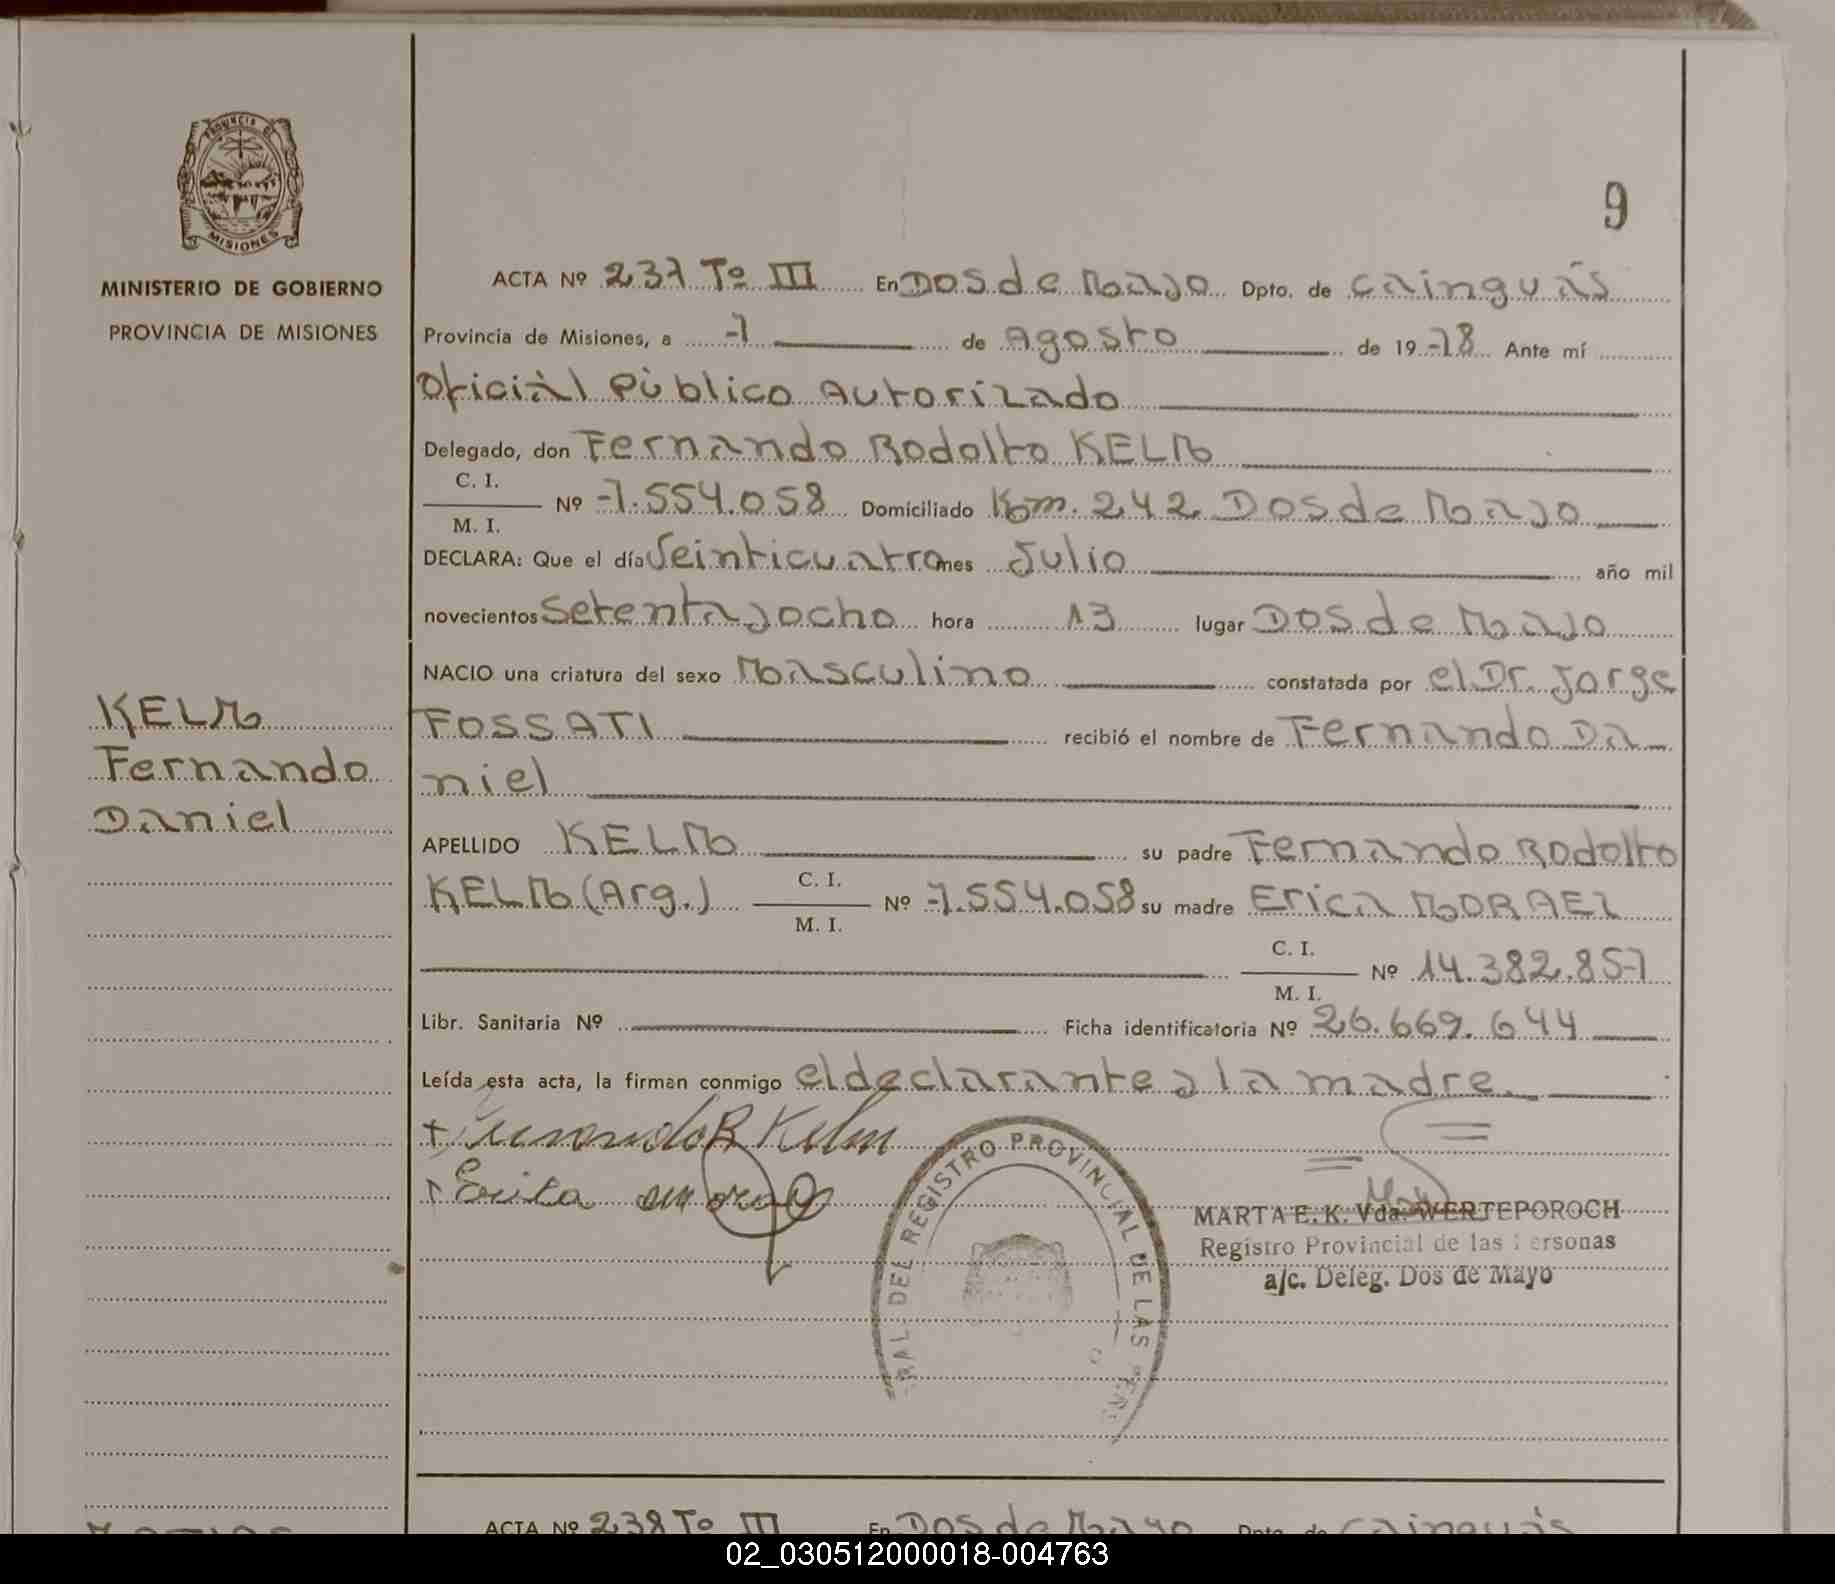 9
MINISTERIO DE GOBIERNO
PROVINCIA DE MISIONES
PROVINCIA DE
MISIONES
ACTA Nº 237 Tº III En Dos de Mayo Dpto. de Cainguás
Provincia de Misiones, a 7 de Agosto de 1978 Ante mí
Oficial Público Autorizado
Delegado, don Fernando Rodolfo KELM
C. I.
M. I. Nº 7.554.058 Domiciliado Km. 242 Dos de Mayo
DECLARA: Que el día Veinticuatro mes Julio año mil
novecientos Setenta y ocho hora 13 lugar Dos de Mayo
NACIO una criatura del sexo Masculino constatada por el Dr. Jorge
FOSSATI recibió el nombre de Fernando Da-
niel
KELM
Fernando
Daniel
APELLIDO KELM su padre Fernando Rodolfo
KELM (Arg.) C. I. M. I. Nº 7.554.058 su madre Erica MORAEZ
C. I. M. I. Nº 14.382.857
Libr. Sanitaria Nº Ficha identificatoria Nº 26.669.644
Leída esta acta, la firman conmigo el declarante y la madre.
Fernando R Kelm
REGISTRO PROVINCIAL DE LAS
MARTA E. K. Vda. WERTEPOROCH
Registro Provincial de las Personas
a/c. Deleg. Dos de Mayo
ACTA Nº 238 Tº III En Dos de Mayo Dpto. de Cainguás
02_030512000018-004763